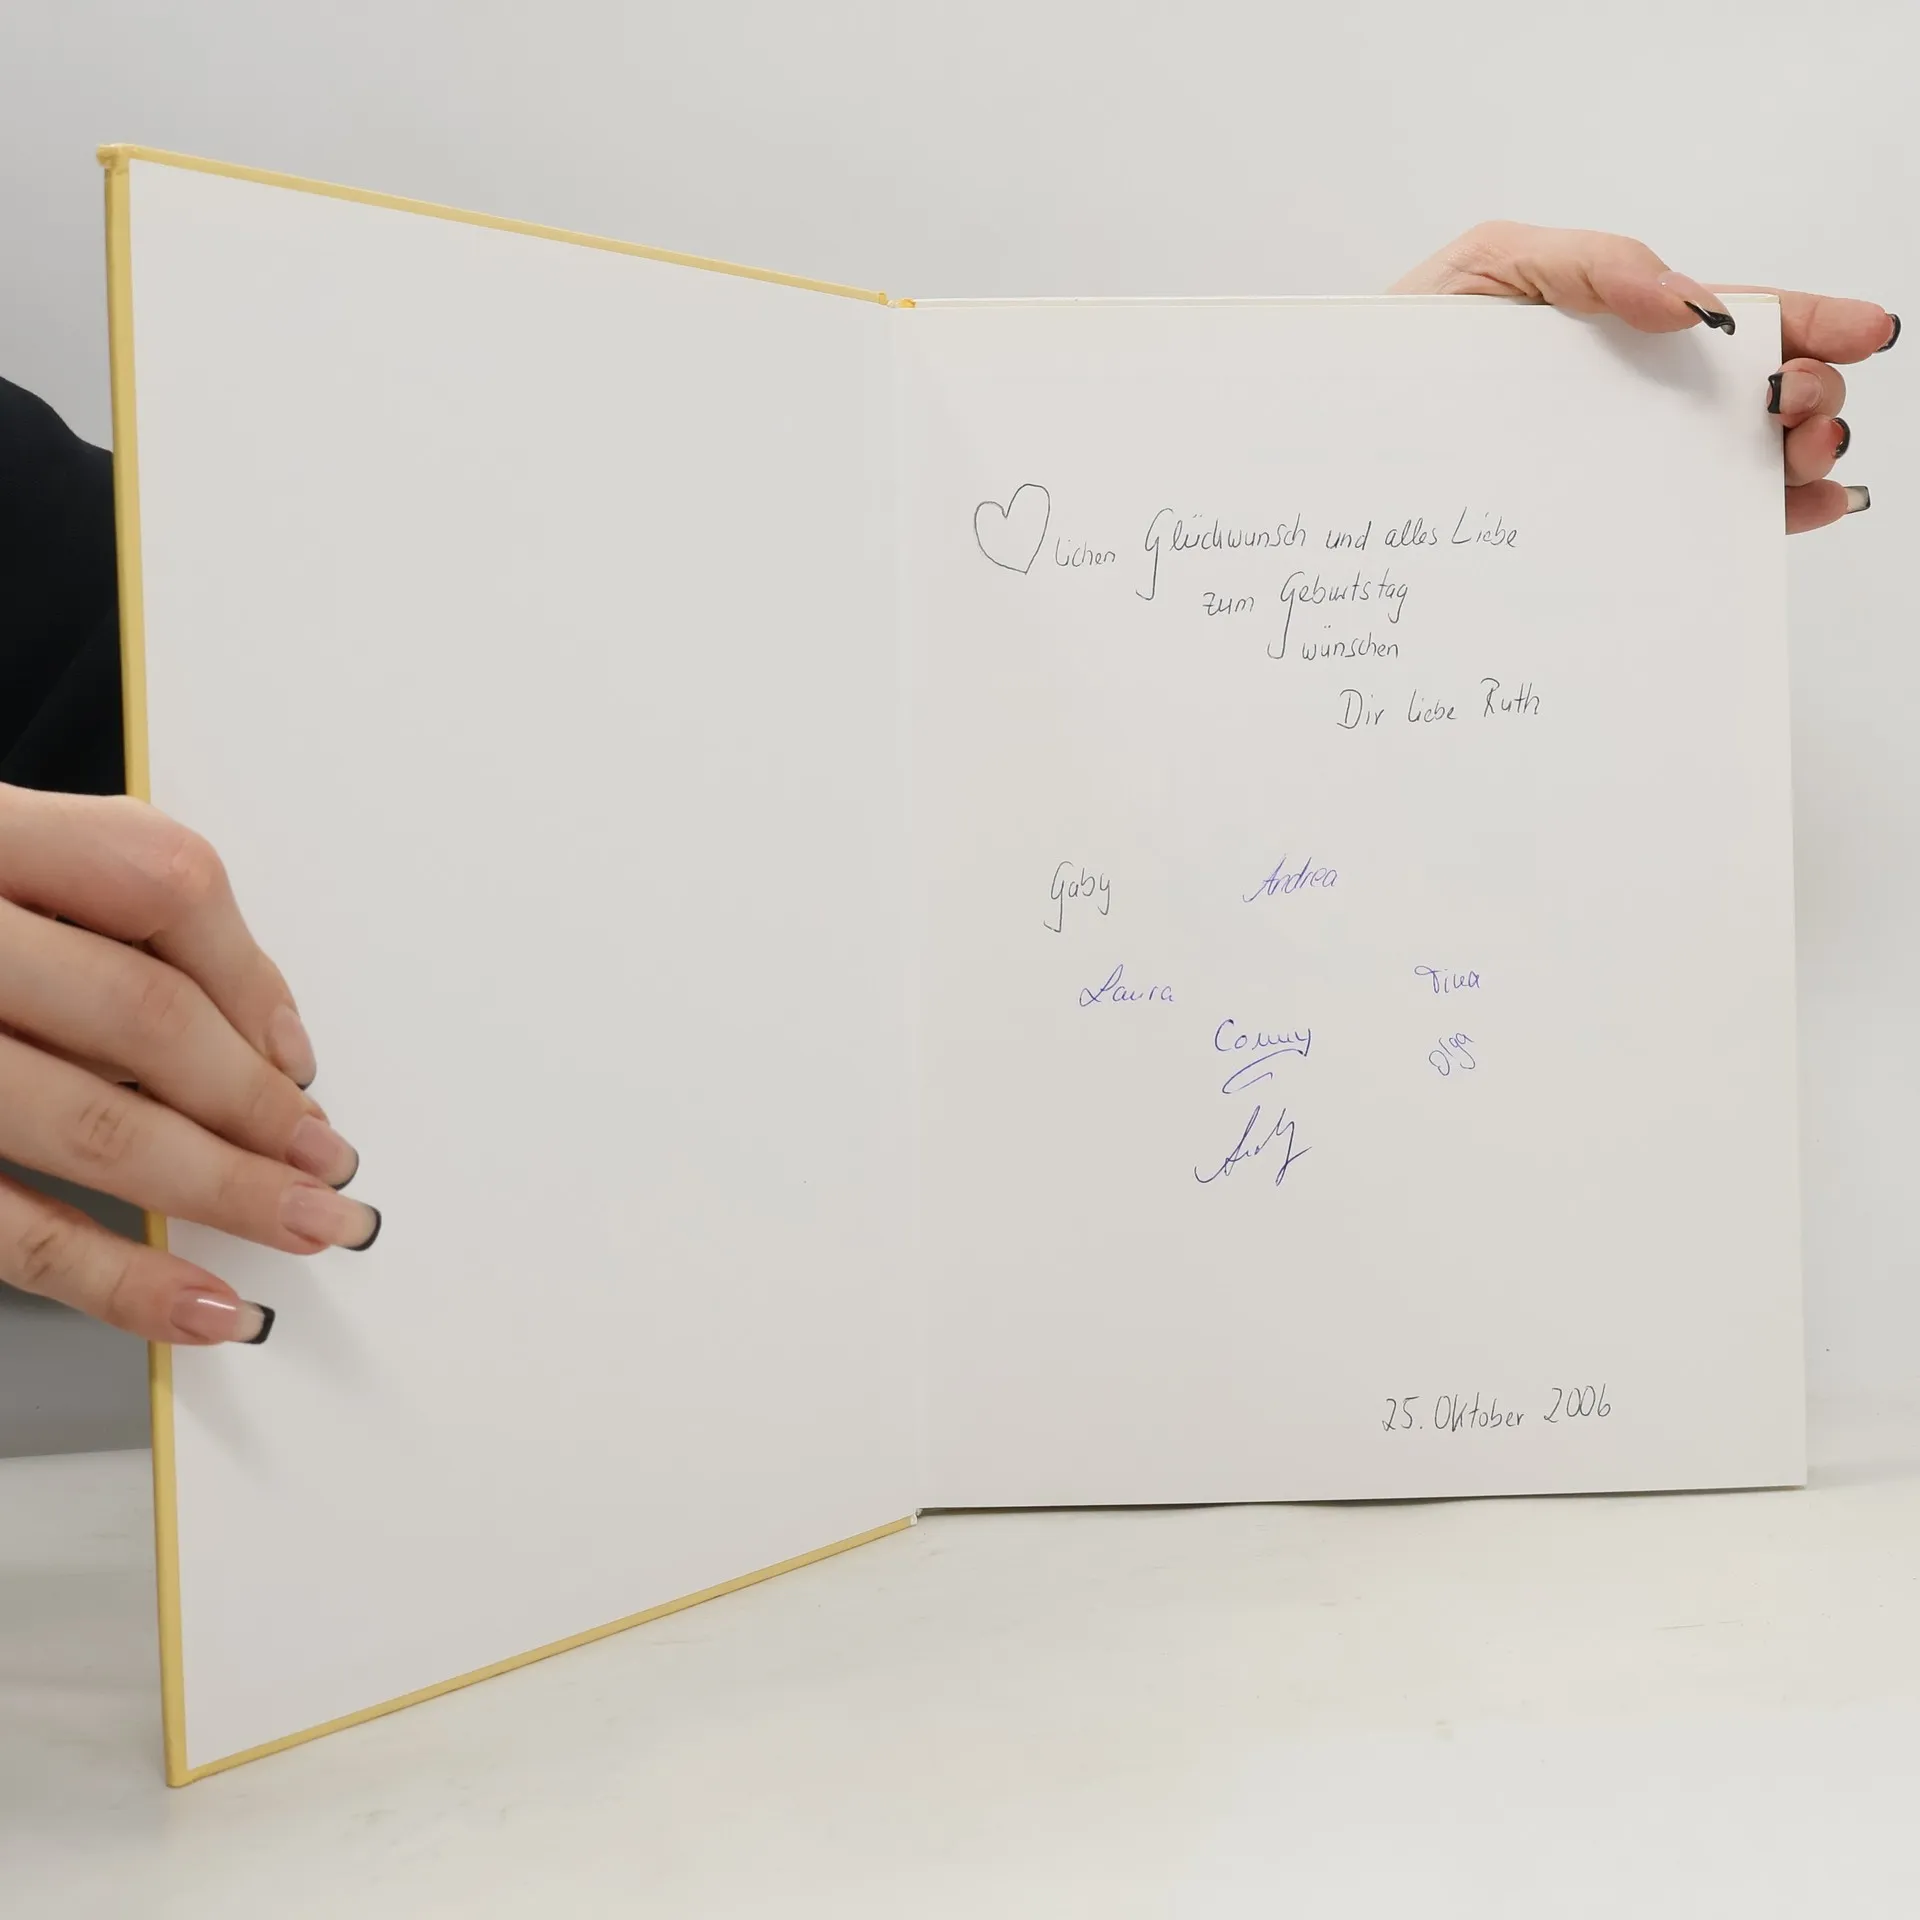 ♡lichen Glückwunsch und alles Liebe
zum Geburtstag
wünschen
Dir liebe Ruth
Gaby Andrea
Laura Tina
Conny Olga
Andy
25. Oktober 2006